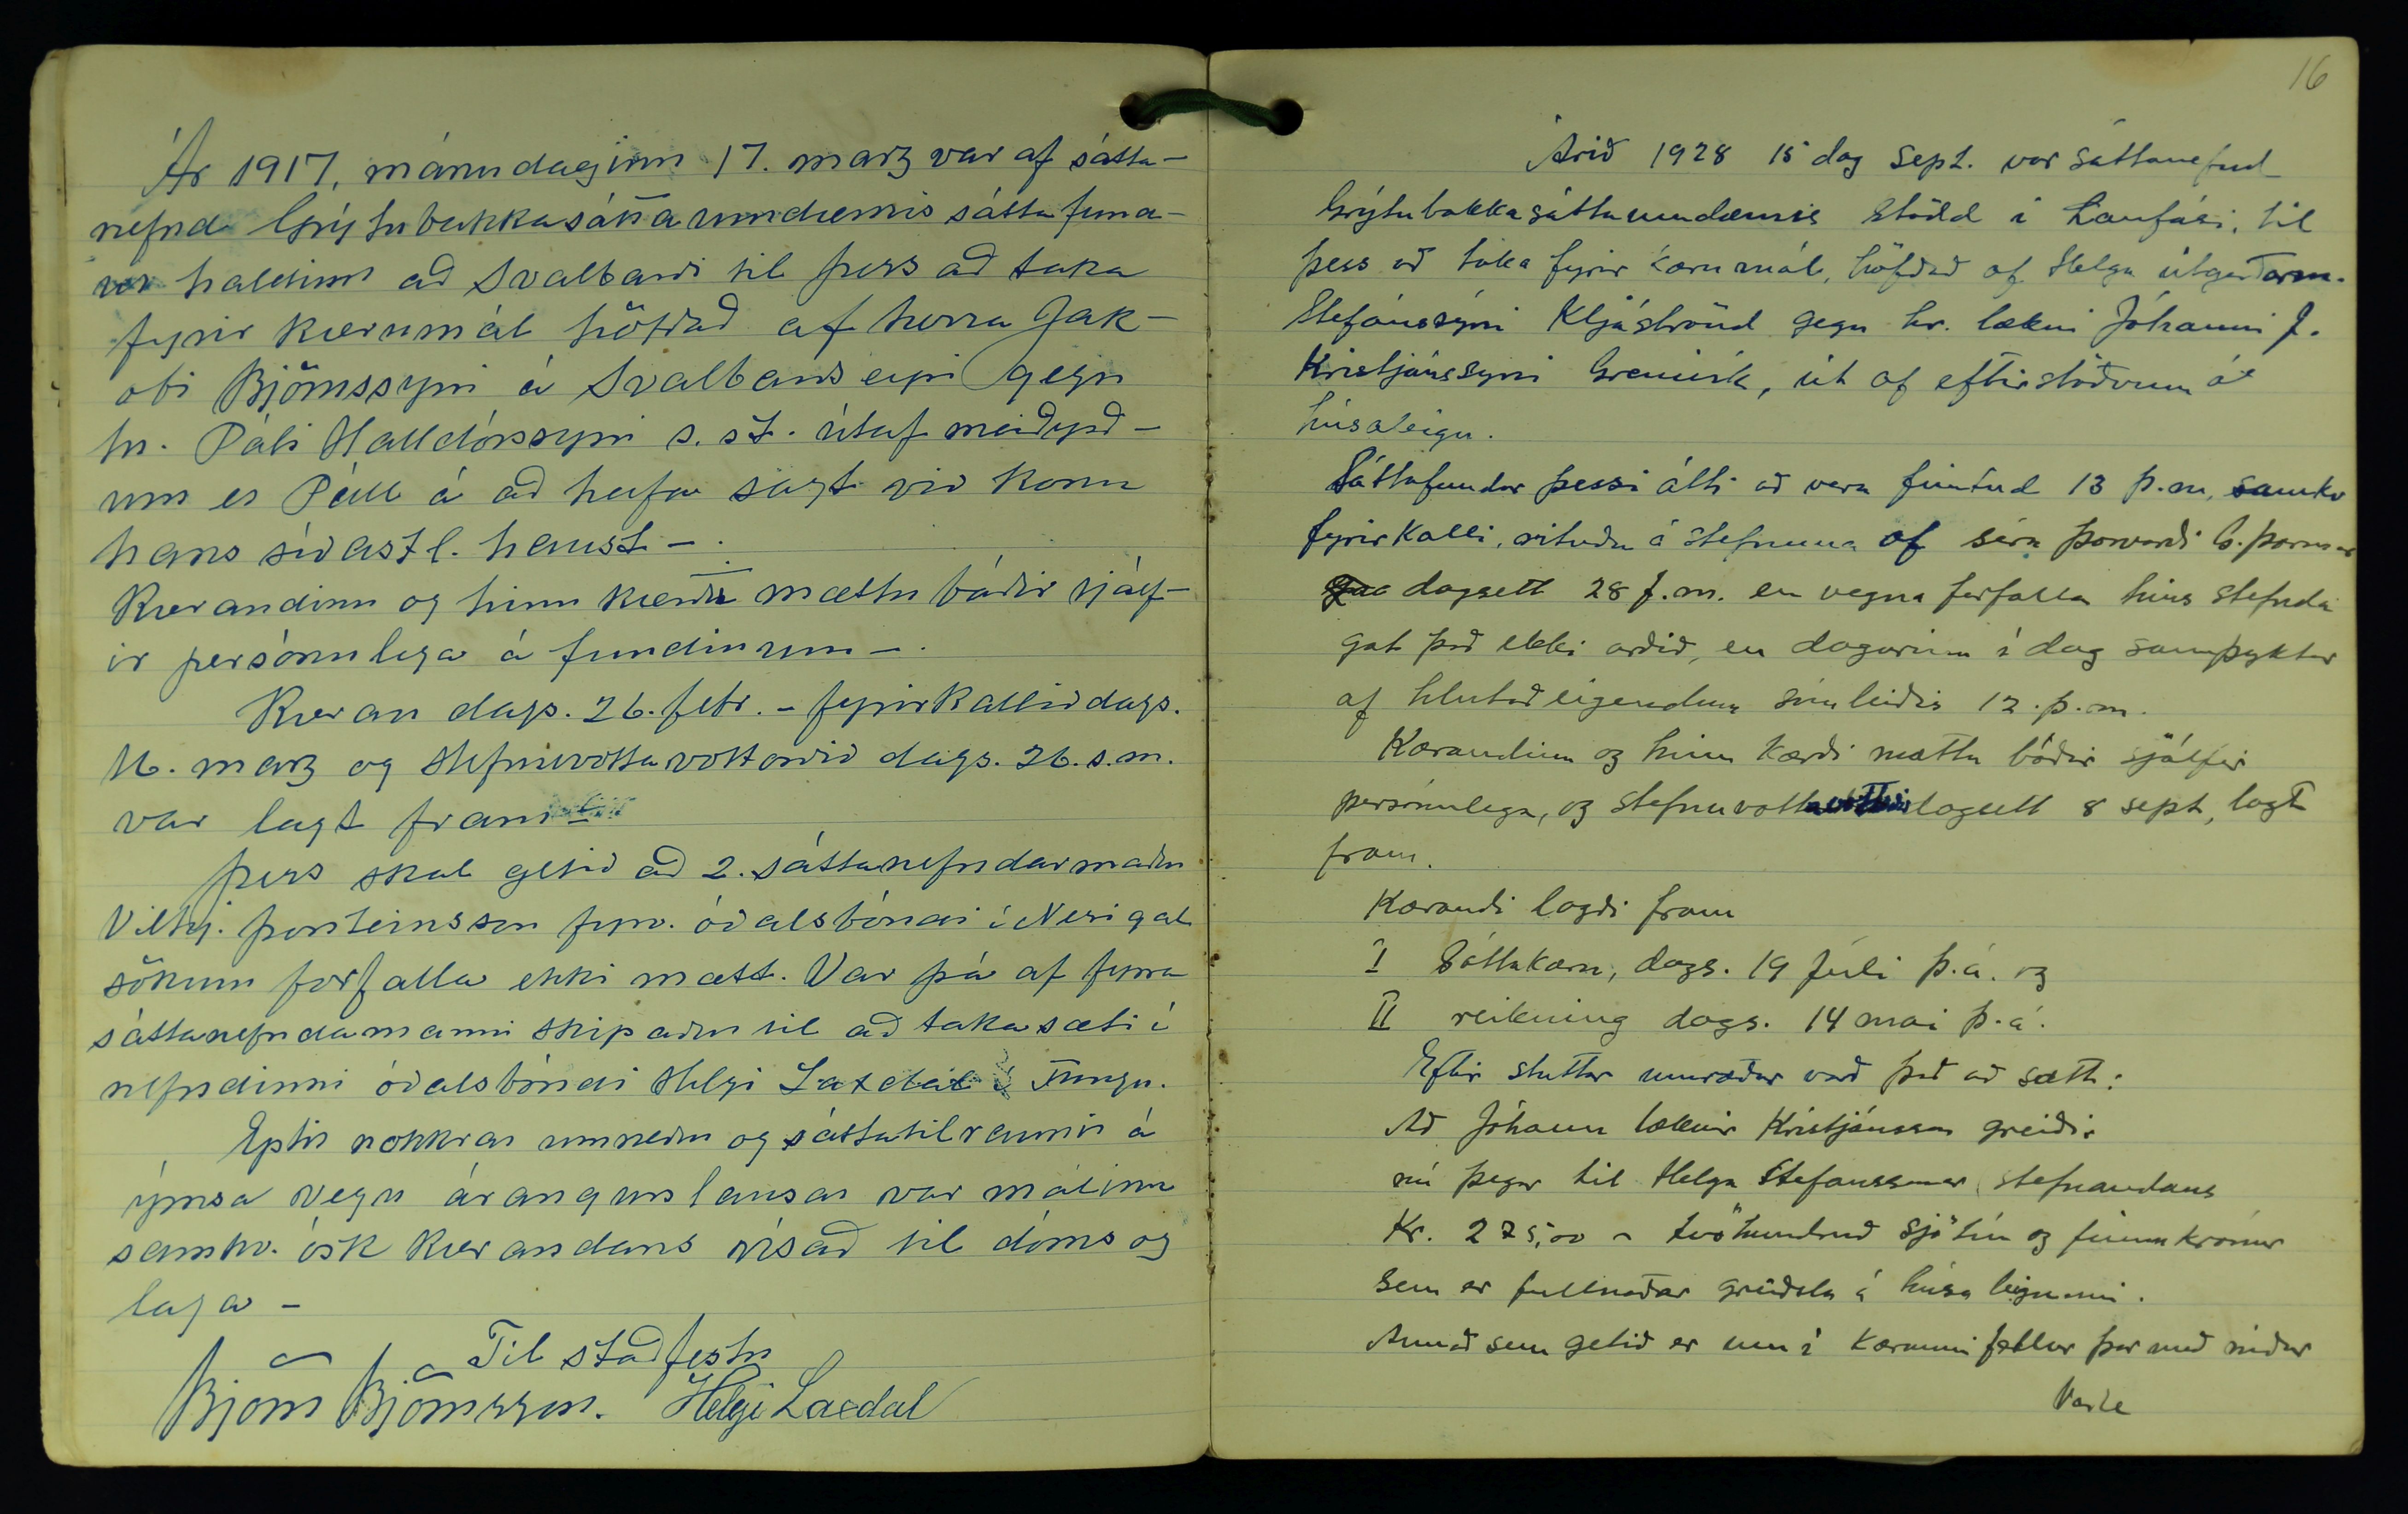 Ár 1917, mánudaginn 17. marz var af sátta-
nefnd Grýtubakkasáttaumdæmis sáttafund-
ur haldinn að Svalbarði til þess að taka
fyrir kærumál höfðað af herra Jak-
obi Björnssyni á Svalbarðseyri gegn
hr. Páli Halldórssyni s. st. útaf meiðyrð-
um er Páll á að hafa sagt við konu
hans síðastl. haust - .
Kærandinn og hinn kærði mættu báðir sjálf-
ir persónulega á fundinum - .
Kæran dags. 26. febr. - fyrirkallið dags.
16. marz og stefnuvottavottorðið dags. 26. s.m.
var lagt fram -
Þess skal getið að 2. sáttanefndarmaður
Vilhj. Þorsteinsson fyrv. óðalsbóndi í Nesi gat
sökum forfalla ekki mætt. Var þá af fyrra
sáttanefndamanni skipaður til að taka sæti í
nefndinni óðalsbóndi Helgi Laxdal í Tungu.
Eptir nokkrar umræður og sáttatilraunir á
ýmsa vegu árangurslausar var málinu
samkv. ósk kærandans vísað til dóms og
laga -
Til staðfestu
Björn Björnsson. Helgi Laxdal
16
Árið 1928 15 dag sept. var sáttanefnd
Grýtubakkasáttaumdæmis stödd í Laufási, til
þess að taka fyrir kærumál, höfðað af Helga útgerðarm.
Stefánssyni Kljáströnd gegn hr. lækni Jóhanni J.
Kristjánssyni Grenivík, út af eftirstöðvum á
húsaleigu.
Sáttafundur þessi átti að vera fimtud 13 þ.m, samkv
fyrirkalli, rituðu á stefnuna af séra Þorvarði G. Þormar
dagsett 28 f.m. en vegna forfalla hins stefnda
gat það ekki orðið, en dagurinn í dag samþyktur
af hlutaðeigendum símleiðis 12. þ.m.
Kærandinn og hinn kærði mættu báðir sjálfir
persónulega, og stefnuvotta dagsett 8 sept, lagt
fram.
Kærandi lagði fram
I Sáttakæru, dags. 19 Júli þ.á. og
II reikning dags. 14 mai þ.á.
Eftir stuttar umræður varð það að sætt:
Að Jóhann læknir Kristjánsson greiðir
nú þegar til Helga Stefanssonar stefnandans
Kr. 275,00 - tvöhundruð sjötíu og fimm krónur
sem er fullnaðar greiðsla á húsaleigunni.
Annað sem getið er um í kærunni fellur þar með niður